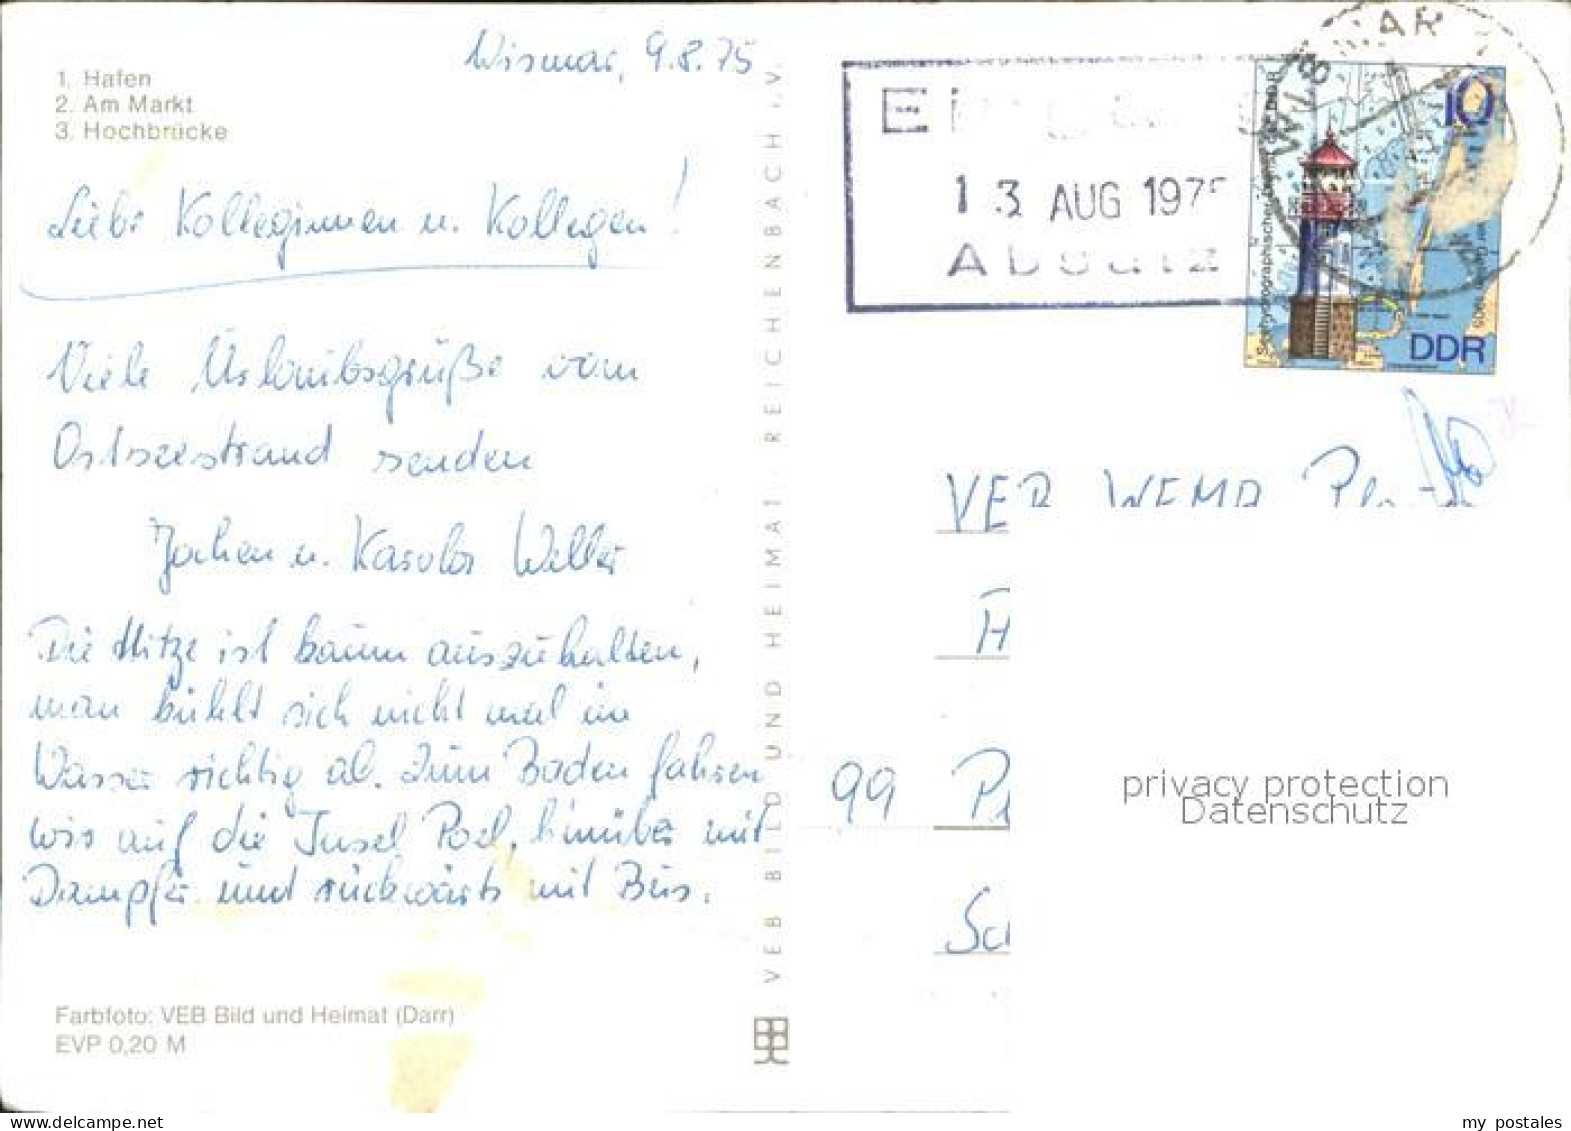 Wismar, 9.8.75
1. Hafen
2. Am Markt
3. Hochbrücke
Liebe Kolleginnen u. Kollegen!
Viele Urlaubsgrüße vom
Ostseestrand senden
Jochen u. Karola Weller
Die Hitze ist kaum auszuhalten,
man kühlt sich nicht mal im
Wasser richtig ab. Zum Baden fahren
wir auf die Insel Poel, hinüber mit
Dampfer und rückwärts mit Bus.
Farbfoto: VEB Bild und Heimat (Darr)
EVP 0,20 M
VEB BILD UND HEIMAT REICHENBACH i.V.
13 AUG 1975
Absatz
10
Seehydrographischer Dienst der DDR
DDR
VEB WEMA
99
privacy protection
Datenschutz
my postales